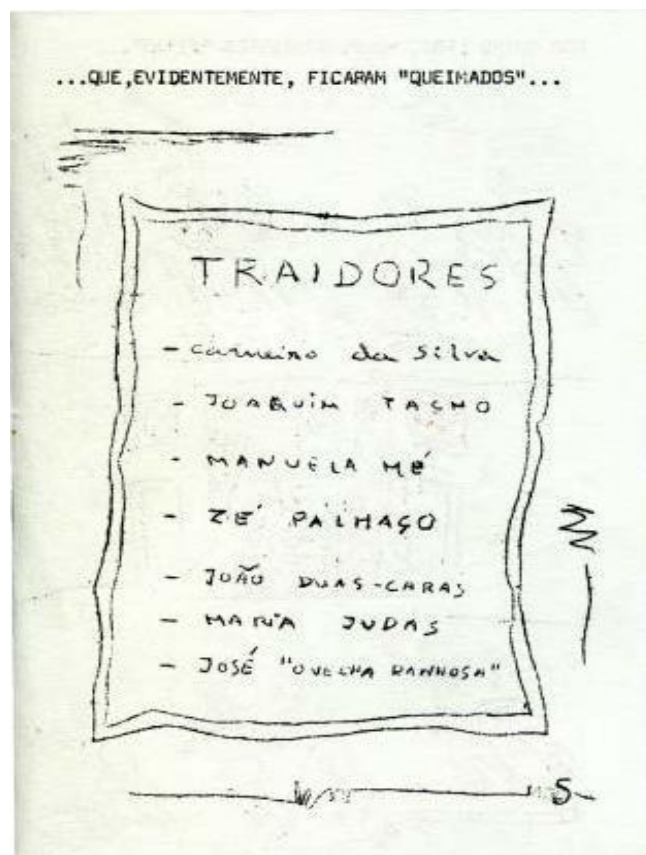 ...QUE,EVIDENTEMENTE, FICARAM "QUEIMADOS"...
TRAIDORES
- Carneiro da Silva
- JOAQUIM TACHO
- MANUELA MÉ
- ZÉ PALHAÇO
- JOÃO DUAS-CARAS
- MARIA JUDAS
- JOSÉ "OVELHA RANHOSA"
5